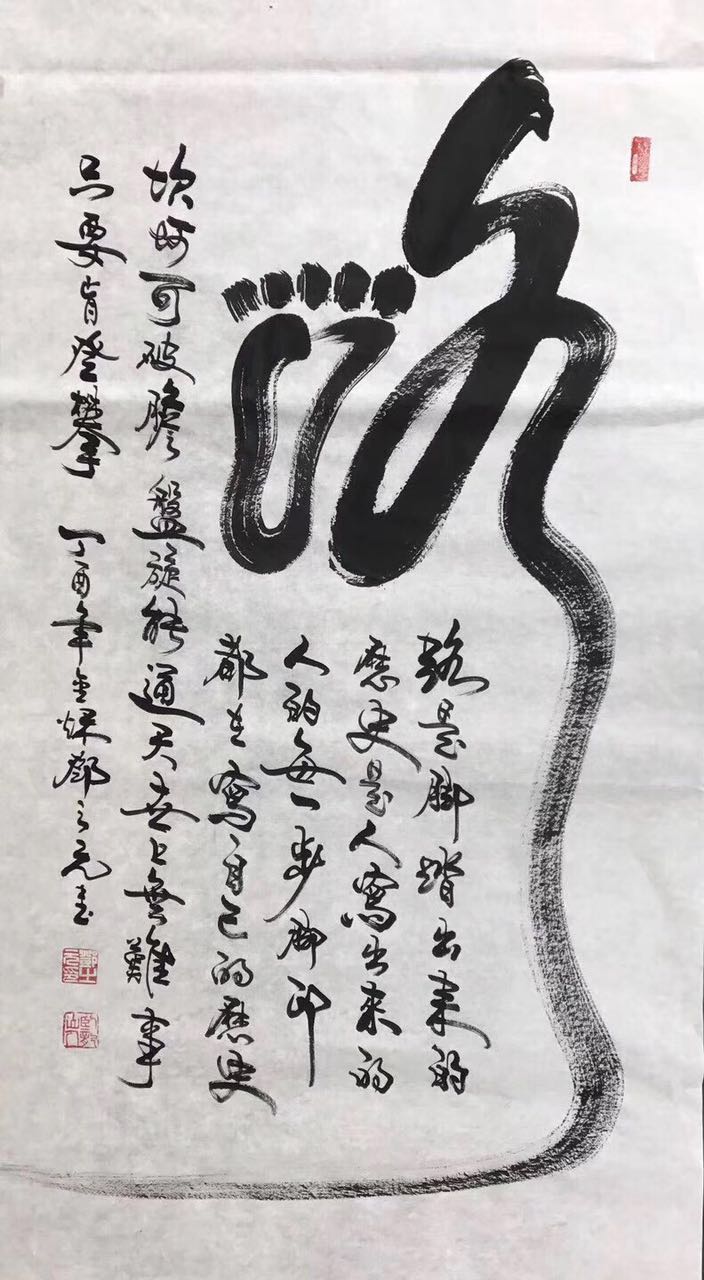 路
路是脚踏出来的
歷史是人寫出来的
人的每一步脚印
都在寫自己的歷史
坎坷可破膽盤旋能通天世上無難事
只要肯登攀 丁酉年鄧之元書